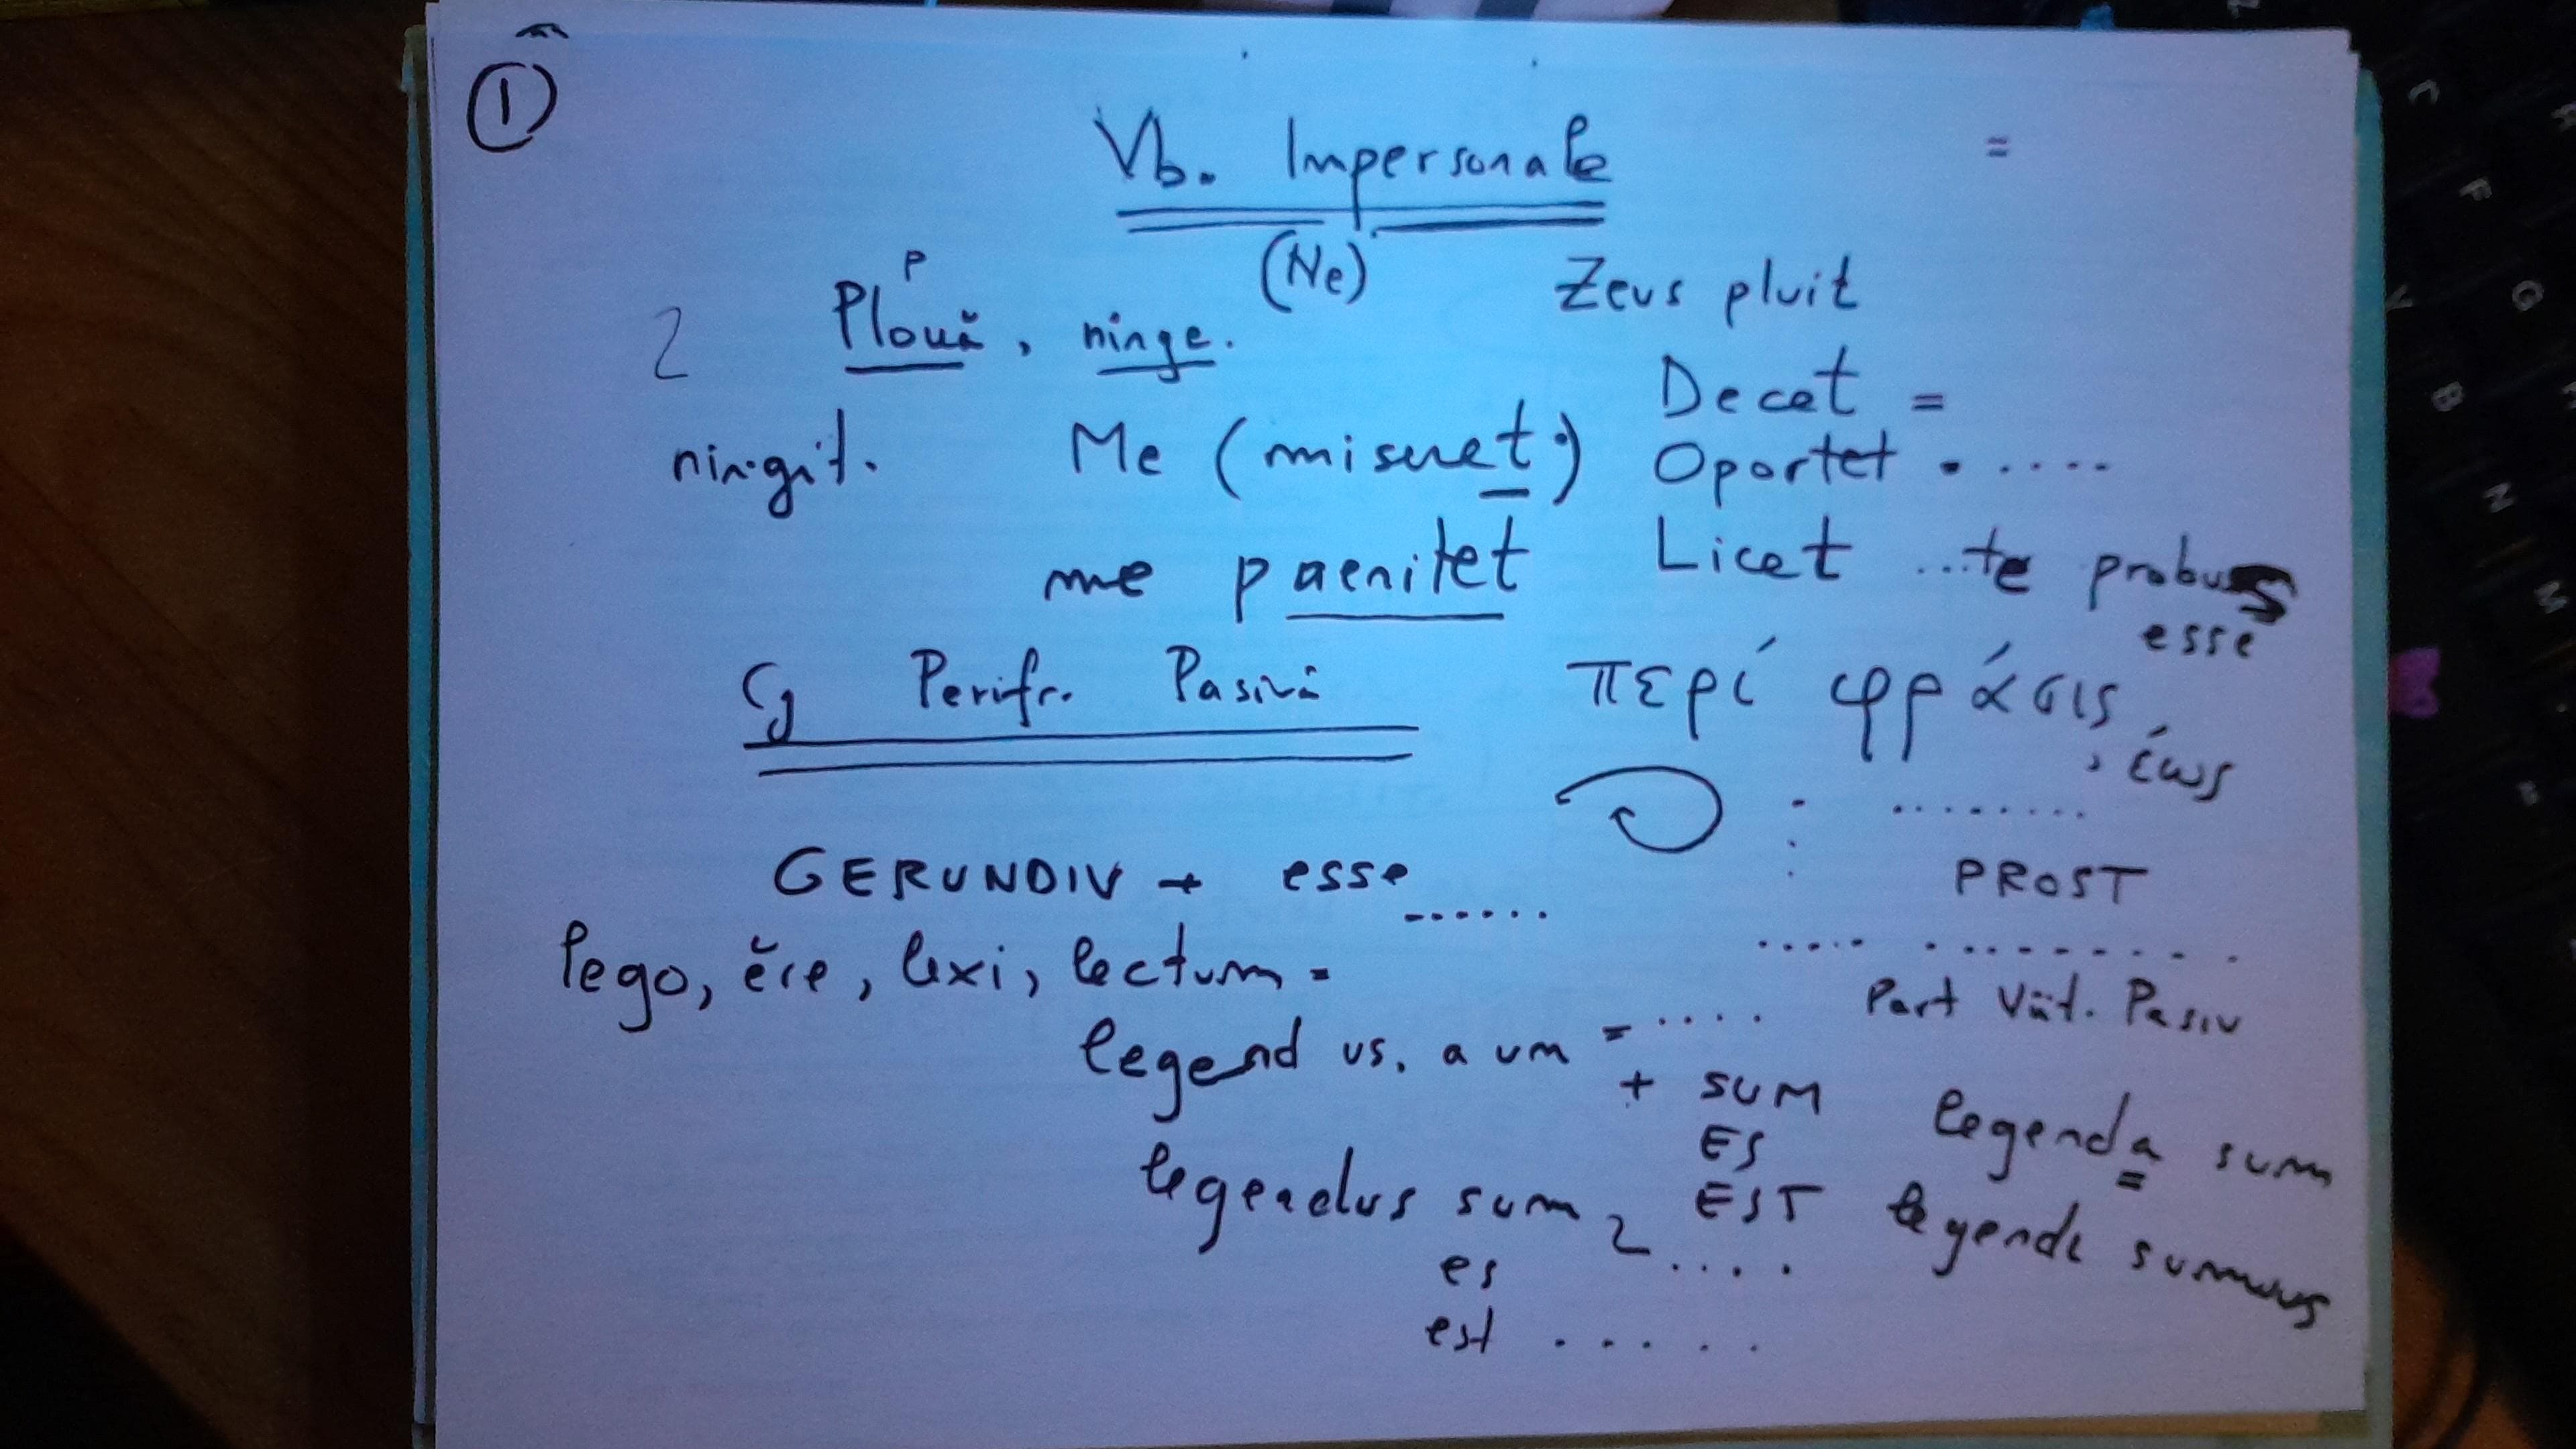 1
Vb. Impersonale
=
(Ne)
Zeus pluit
P
2 Plouă, ninge.
Decet =
ningit. Me (miseret.) Oportet . .....
me paenitet Licet ...te probus
esse
Cj Perifr. Pasivă περί φράσις
, έως
GERUNDIV + esse ......
PROST
lego, ĕre, lexi, lectum =
Part Viit. Pasiv
legend us, a um = ....
+ SUM legenda sum
ES
legendus sum 2 EST legendi sumus
es ....
est .....